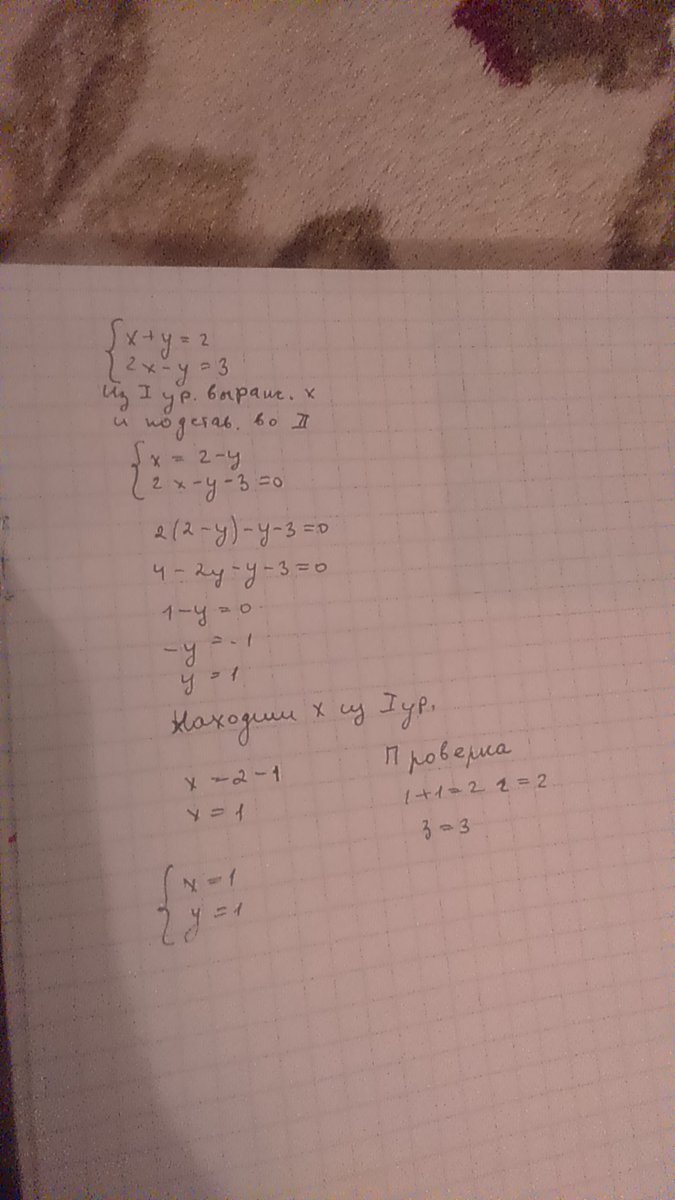 {x+y=2
{2x-y=3
Из I ур. выраж. x
и подстав. во II
{x = 2-y
{2x-y-3=0
2(2-y)-y-3=0
4-2y-y-3=0
1-y=0
-y=-1
y=1
Находим x из I ур.
x=2-1
x=1
Проверка
1+1=2 2=2
3=3
{x=1
{y=1